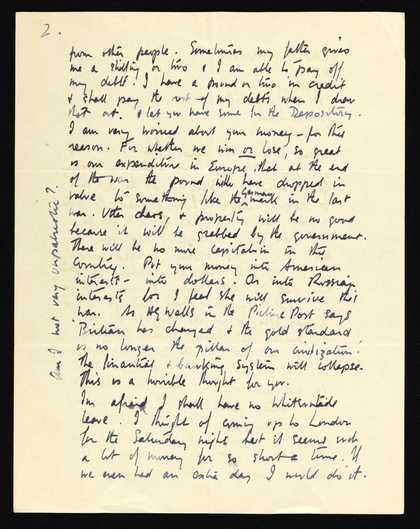 2.
from other people. Sometimes my father gives
me a shilling or two & I am able to pay off
my debts. I have a pound or two in credit
& shall pay the rest of my debts when I draw
that out. & let you have some for the Depository.
I am very worried about your money – for this
reason. For whether we win or lose, so great
is our expenditure in Europe, that at the end
of the war the pound will have dropped in
value to something like the German mark in the last
war. Your shares, & property will be no good
because it will be grabbed by the government.
There will be no more capitalism in this
Country. Put your money into American
interests – into dollars. Or into Russian
interests for I feel she will survive this
war. As HG Wells in the Picture Post says
Britain has changed & the gold standard
is no longer the pillar of our civilization!
The financial & banking system will collapse.
This is a horrible thought for you.
I'm afraid I shall have no Whitsuntide
leave. I thought of coming up to London
for the Saturday night but it seems such
a lot of money for so short a time. If
we even had an extra day I would do it.
Am I not very unpatriotic?